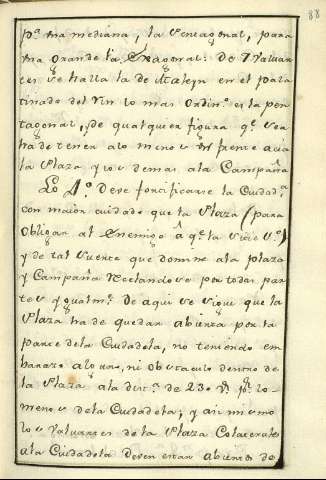 88
p.ª una mediana, la Sexagonal, para
una grande la Exagonal: De 7 Valuar
tes se halla la de Mcaleyn en el pala
tinado del Rin lo mas ordin.º es la pen
tagonal, de qualquier figura q.e sea
ha de tener alo menos un frente acia
la Plaza y los demas ala Campaña
Lo 4.º Deve fortificarse la Ciudad.ª
con maior cuidado que la Plaza (para
obligar al Enemigo â q.e la Sitie 1.º)
y de tal suerte que domine ala plaza
y Campaña Reelando se por todas par
tes ygualm.te De aqui se sigue que la
Plaza ha de quedar abierta por la
parte dela Ciudadela, no teniendo em
barazo alguno, ni obstaculo dentro de
la Plaza ala dist.ª de 230 V.s p.r lo
menos dela Ciudadela; y asi mismo
los Valuartes de la Plaza Colaterales
ala Ciudadela Deven estar abiertos de